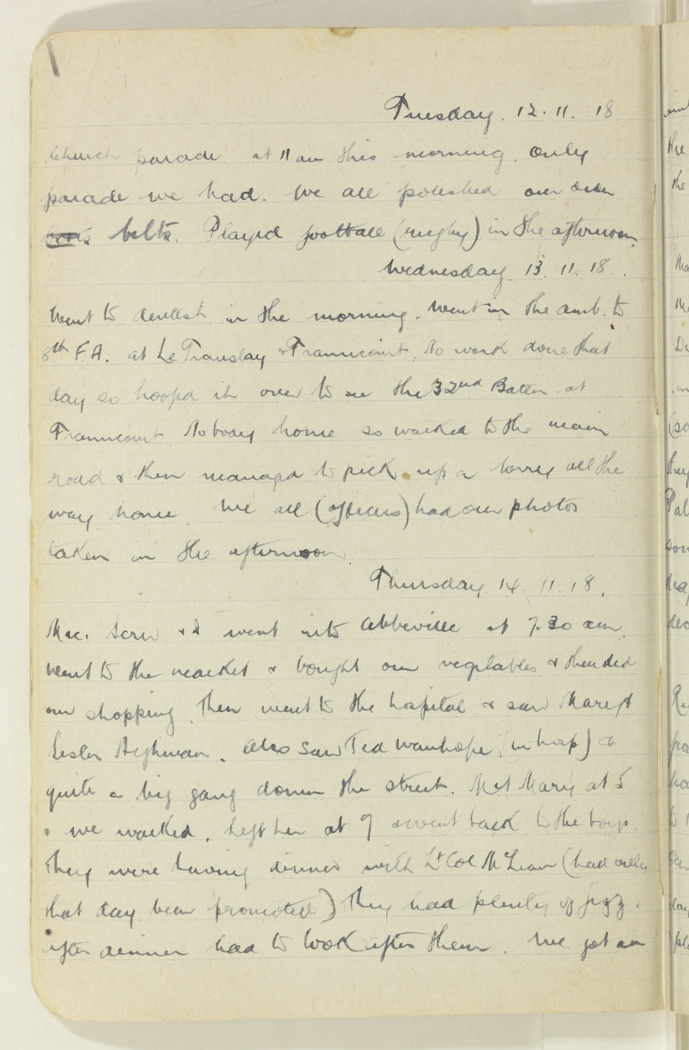 Tuesday. 12.11.18
Church parade at 11 am this morning. only
parade we had. We all polished our own
belts. Played football (rugby) in the afternoon.
Wednesday. 13.11.18.
Went to dentist in the morning. Went in the amb. to
8th F.A. at Le Translay & Framicourt. No work done that
day so hooped it over to see the 32nd Batten at
Framicourt. Nobody home so walked to the main
road & then managed to pick up a lorry all the
way home. We all (officers) had our photos
taken in the afternoon.
Thursday 14.11.18.
Mac. & I went into Abbeville at 7.30 am.
Went to the market & bought our vegetables & then did
our shopping. Then went to the hospital & saw Mary &
also saw Ted Wanhope (in hosp) &
quite a big gang down the street. Met Mary at 5
& we walked. Left her at 9 & went back to the boys.
They were having dinner with Lt Col McLean (had only
that day been promoted) they had plenty of fizz.
after dinner had to look after them. We got an